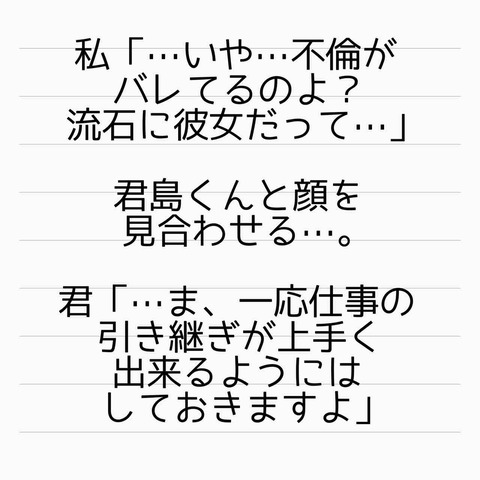 私「…いや…不倫が
バレてるのよ？
流石に彼女だって…」
君島くんと顔を
見合わせる…。
君「…ま、一応仕事の
引き継ぎが上手く
出来るようには
しておきますよ」